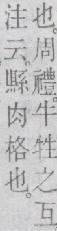 也。周禮。牛牲之互
注云。縣肉格也。